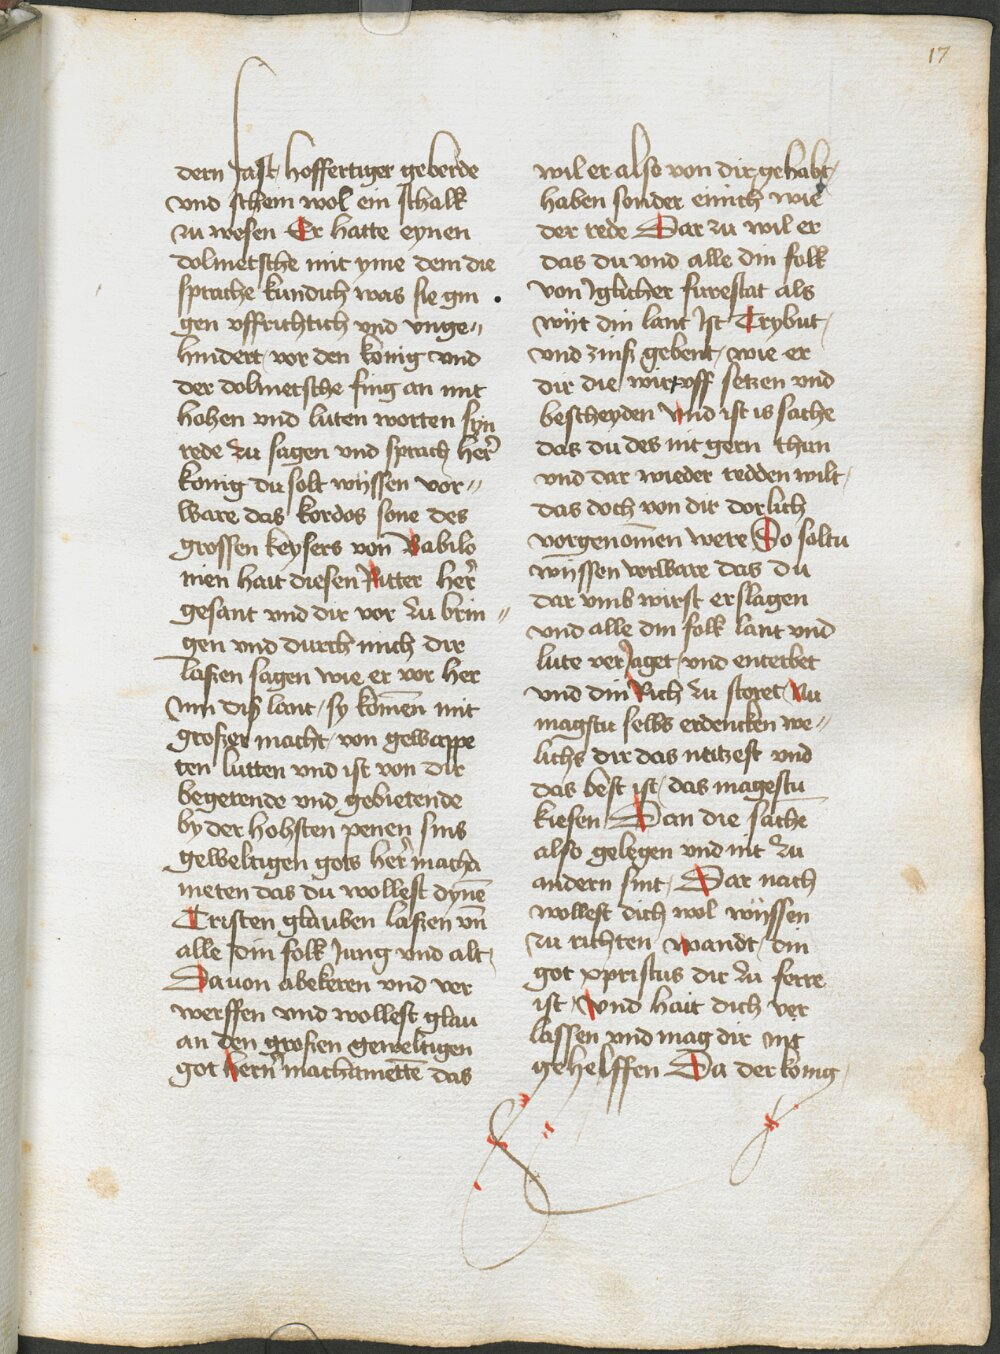 17
dern fast hoffertiger geberde
vnd schein wol ein schalk
zu wesen Er hatte eynen
dolmetsche mit yme dem die
sprache kundich was sie gin
gen vffrichtich vnd vnge〃
hindert vor den konig vnd
der dolmetsche fing an mit
hohen vnd luten worten syn
rede zu sagen vnd sprach her̃
konig du solt wyssen vor〃
ware das kordos sone des
grossen keysers von Babilo
nien hait diesen Ritter her̃
gesant vnd dir vor zu brin〃
gen vnd durch mich dir
laßen sagen wie er vor her
inn diß lant / sy komẽn mit
großer macht / von gewappe
ten lutten vnd ist von dir
begerende vnd gebietende
by der hohsten penen sins
geweltigen gots her̃ macha
meten das du wollest dynẽ
Cristen glauben laßen vñ
alle din folk Jung vnd alt /
Dauon abekeren vnd ver
werffen vnd wollest glau
an den großen geweltigen
got hern machamettẽ das
wil er also von dir gehabt /
haben sonder einich wie
der rede Dar zu wil er
das du vnd alle din folk
von Jglicher furestat als
wijt din lant Jst Trybut /
vnd zinß gebent / wie er
dir die wirt vff setzen vnd
bescheyden Vnd ist is sache
das du des nit gern thun
vnd dar wieder redden wilt /
das doch von dir dorlich
vorgenom̃en were So saltu
wyssen verware das du
dar vmb wirst erslagen
vnd alle din folk lant vnd
lute ver Jaget / vnd enterbet
vnd din Rich zu storet / Nu
magstu selbs erdencken we〃
lichs dir das nutzest vnd
das best ist / das magestu
kiesen Dan die sache
also gelegen vnd nit zu
andern sint / Dar nach
wollest dich wol wyssen
zu richten wandt / din
got xpristus dir zu ferre
ist / Vnd hait dich ver
lassen vnd mag dir nit
gehelffen Da der konig /